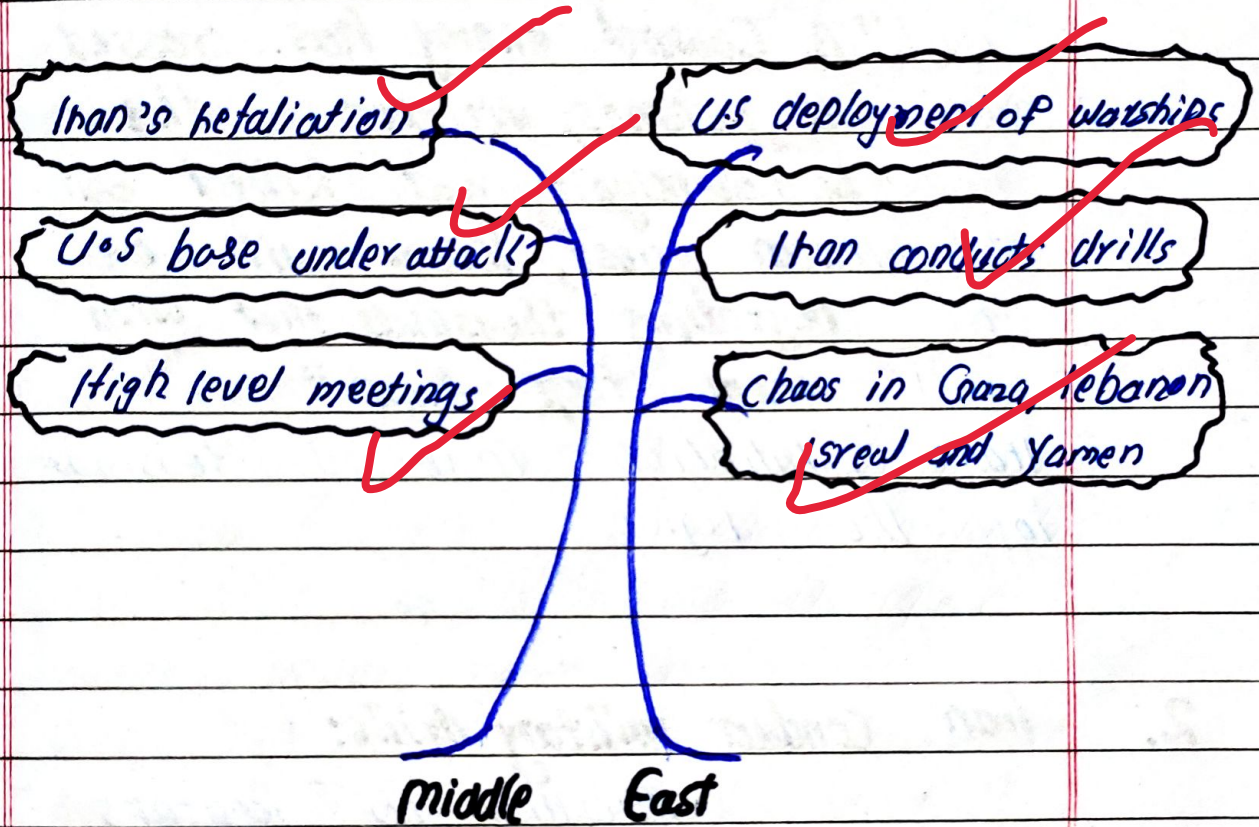 Iran's retaliation
U.S base under attack
High level meetings
U.S deployment of warships
Iran conducts drills
Chaos in Gaza, lebanon
Isreal and Yamen
Middle East